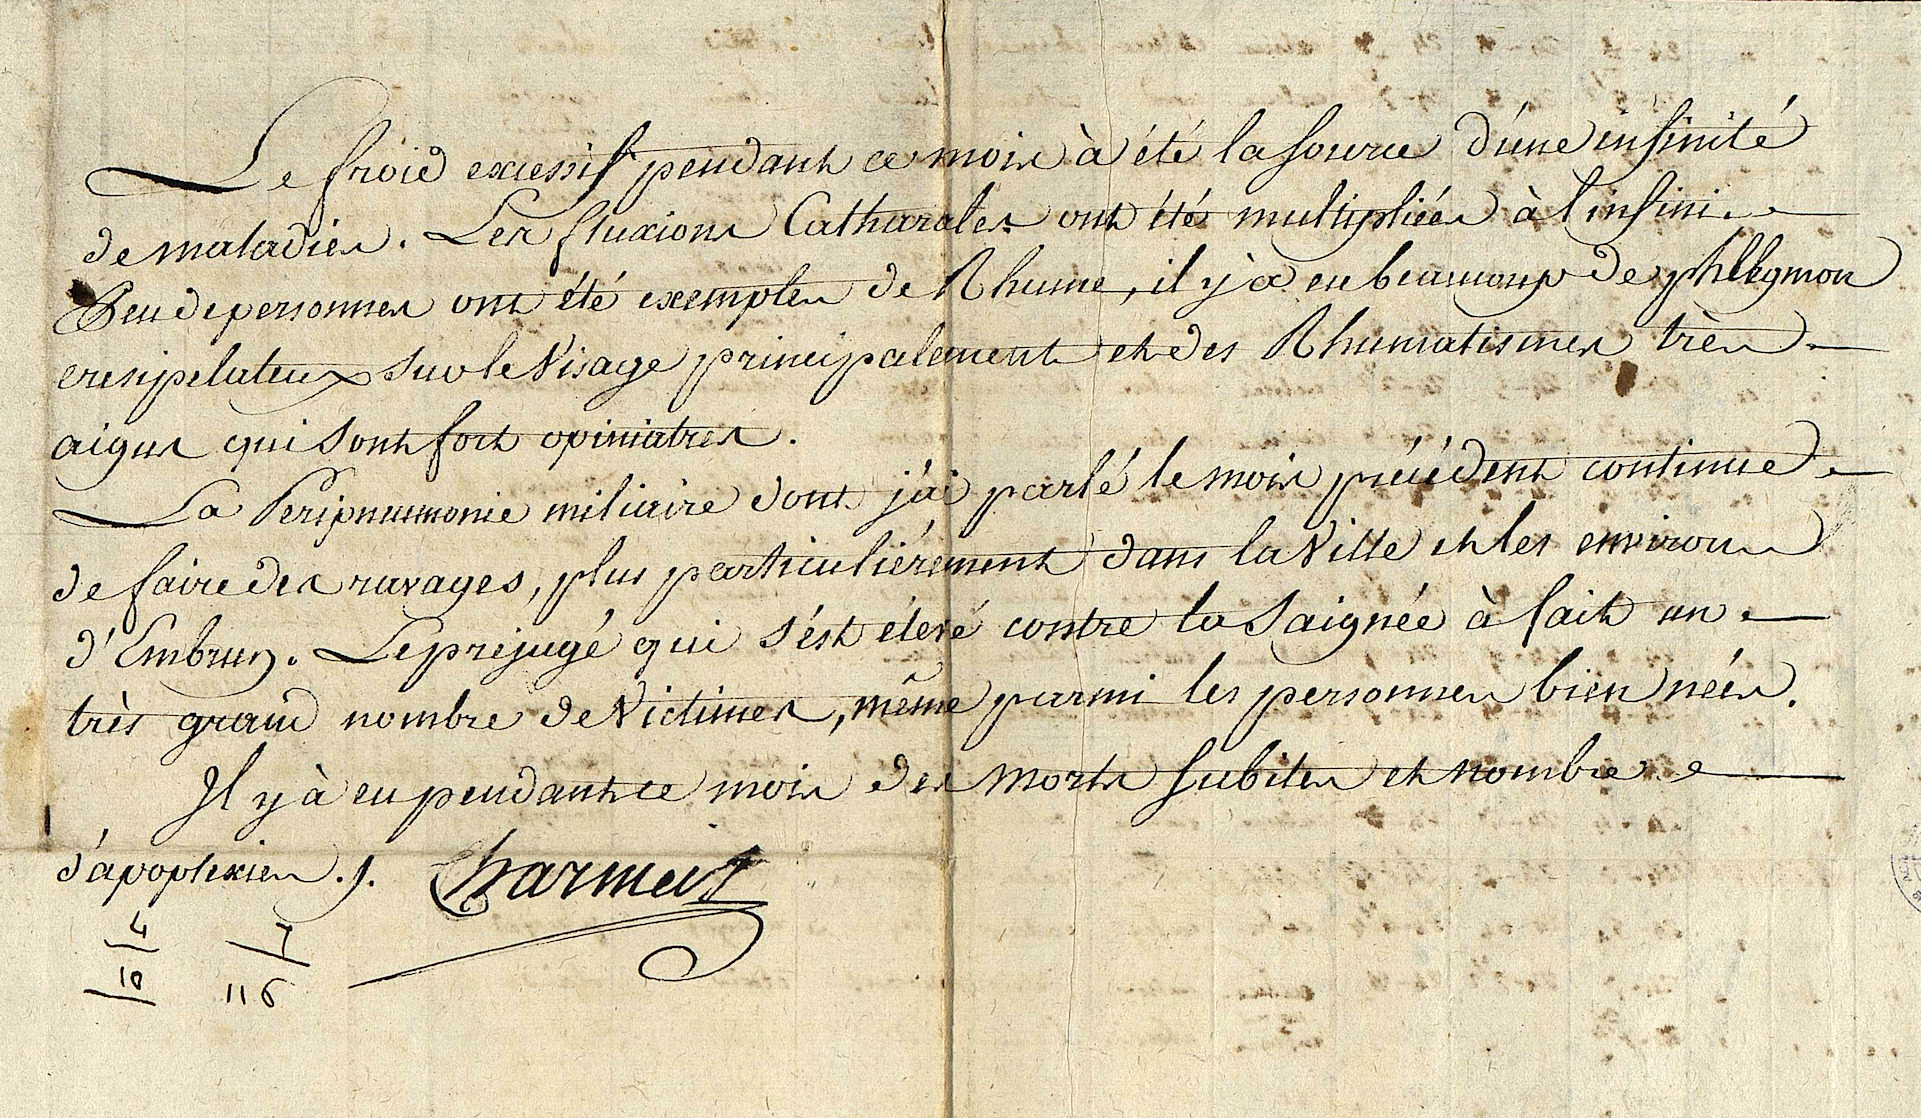 Le froid excessif pendant ce mois à été la source d'une infinité
de maladies. Les fluxions Catharales ont étés multipliées à l'infini.
Peu de personnes ont été exemptes de Rhume, il y a eu beaucoup de phlegmon
eresipelateux sur le Visage principalement et des Rhumatismes très
aigus qui sont fort opiniatres.
La Peripneumonie miliaire dont j'ai parlé le mois précédent continue
de faire des ravages, plus particuliérement dans la Ville et les environs
d'Embrun. Le préjugé qui s'est élevé contre la Saignée à fait un
très grand nombre de Victimes, même parmi les personnes bien nées.
Il y à eu pendant ce mois des morts subites et nombre
d'apoplexies. Charmeil
4 7
10 116